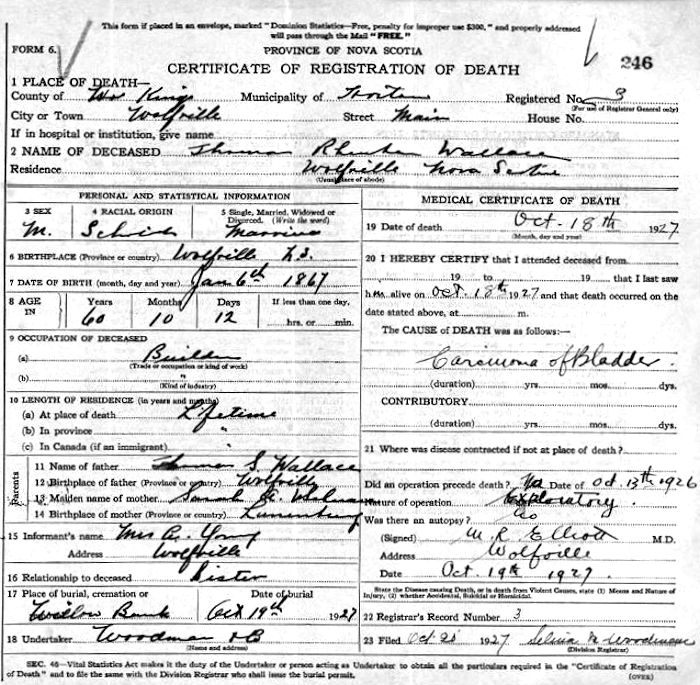 This form if placed in an envelope, marked "Dominion Statistics—Free, penalty for improper use $300," and properly addressed
will pass through the Mail "FREE."
FORM 6.
PROVINCE OF NOVA SCOTIA
246
CERTIFICATE OF REGISTRATION OF DEATH
1 PLACE OF DEATH—
County of Kings Municipality of Horton Registered No. 3
(For use of Registrar General only)
City or Town Wolfville Street Main House No.
If in hospital or institution, give name
2 NAME OF DECEASED Thomas Wallace
Residence Wolfville Nova Scotia
(Usual place of abode)
PERSONAL AND STATISTICAL INFORMATION
3 SEX 4 RACIAL ORIGIN 5 Single, Married, Widowed or Divorced. (Write the word)
M.
6 BIRTHPLACE (Province or country) Wolfville N.S.
7 DATE OF BIRTH (month, day and year) Jan 6th 1867
8 AGE IN Years Months Days If less than one day,
60 10 12 hrs. or min.
9 OCCUPATION OF DECEASED
(a) Builder
(Trade or occupation or kind of work)
(b) "
(Kind of industry)
10 LENGTH OF RESIDENCE (in years and months)
(a) At place of death Lifetime
(b) In province "
(c) In Canada (if an immigrant)
Parents
11 Name of father Thomas S. Wallace
12 Birthplace of father (Province or country) Wolfville
13 Maiden name of mother Sarah
14 Birthplace of mother (Province or country) Lunenburg
15 Informant's name Mrs Young
Address Wolfville
16 Relationship to deceased Sister
17 Place of burial, cremation or Date of burial
Willow Bank Oct 19th 1927
18 Undertaker Woodman
(Name and address)
MEDICAL CERTIFICATE OF DEATH
19 Date of death Oct. 18th 1927
(Month, day and year)
20 I HEREBY CERTIFY that I attended deceased from
19 to 19 that I last saw
h alive on Oct. 18th 1927 and that death occurred on the
date stated above, at m.
The CAUSE of DEATH was as follows:—
Carcinoma of Bladder
(duration) yrs. mos. dys.
CONTRIBUTORY
(duration) yrs. mos. dys.
21 Where was disease contracted if not at place of death?
Did an operation precede death? Yes Date of Oct. 13th 1926
Nature of operation Exploratory
Was there an autopsy? No
(Signed) M. R. Elliott M.D.
Address Wolfville
Date Oct. 19th 1927.
State the Disease causing Death, or in death from Violent Causes, state (1) Means and Nature of
Injury, (2) whether Accidental, Suicidal or Homicidal.
22 Registrar's Record Number 3
23 Filed Oct 1927 Woodman
(Division Registrar)
SEC. 46—Vital Statistics Act makes it the duty of the Undertaker or person acting as Undertaker to obtain all the particulars required in the "Certificate of Registration
of Death" and to file the same with the Division Registrar who shall issue the burial permit.
(OVER)